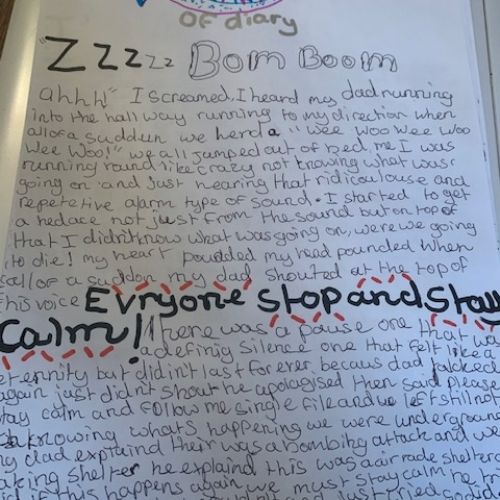 OF diary
"ZZZZZ Bom Boom
ahhh" I screamed, I heard my dad running
into the hall way running to my direction when
all of a suddun we herd a "Wee Woo Wee Woo
Wee Woo!" we all jumped out of bed, me I was
running round like crazy not knowing what was
going on and Just hearing that ridicoulouse and
repetetive alarm type of sound. I started to get
a hedace not just from the sound but on top of
that I didn't know what was going on, were we going
to die! my heart poudded my head pounded when
all of a suddon my dad shouted at the top of
his voice Evryone stop and stay
calm! There was a pause one that was
a definig silence one that felt like a
eternnity but didin't last for ever becaus dad talcked
again just didn't shout he apologised then said please
stay calm and follow me single file and we left still not
knowing whats happening we were undergroun
my dad explaind their was a bombing attack and we
taking shelter he explaind this was a air rade shelter
if this happens again we must stay calm